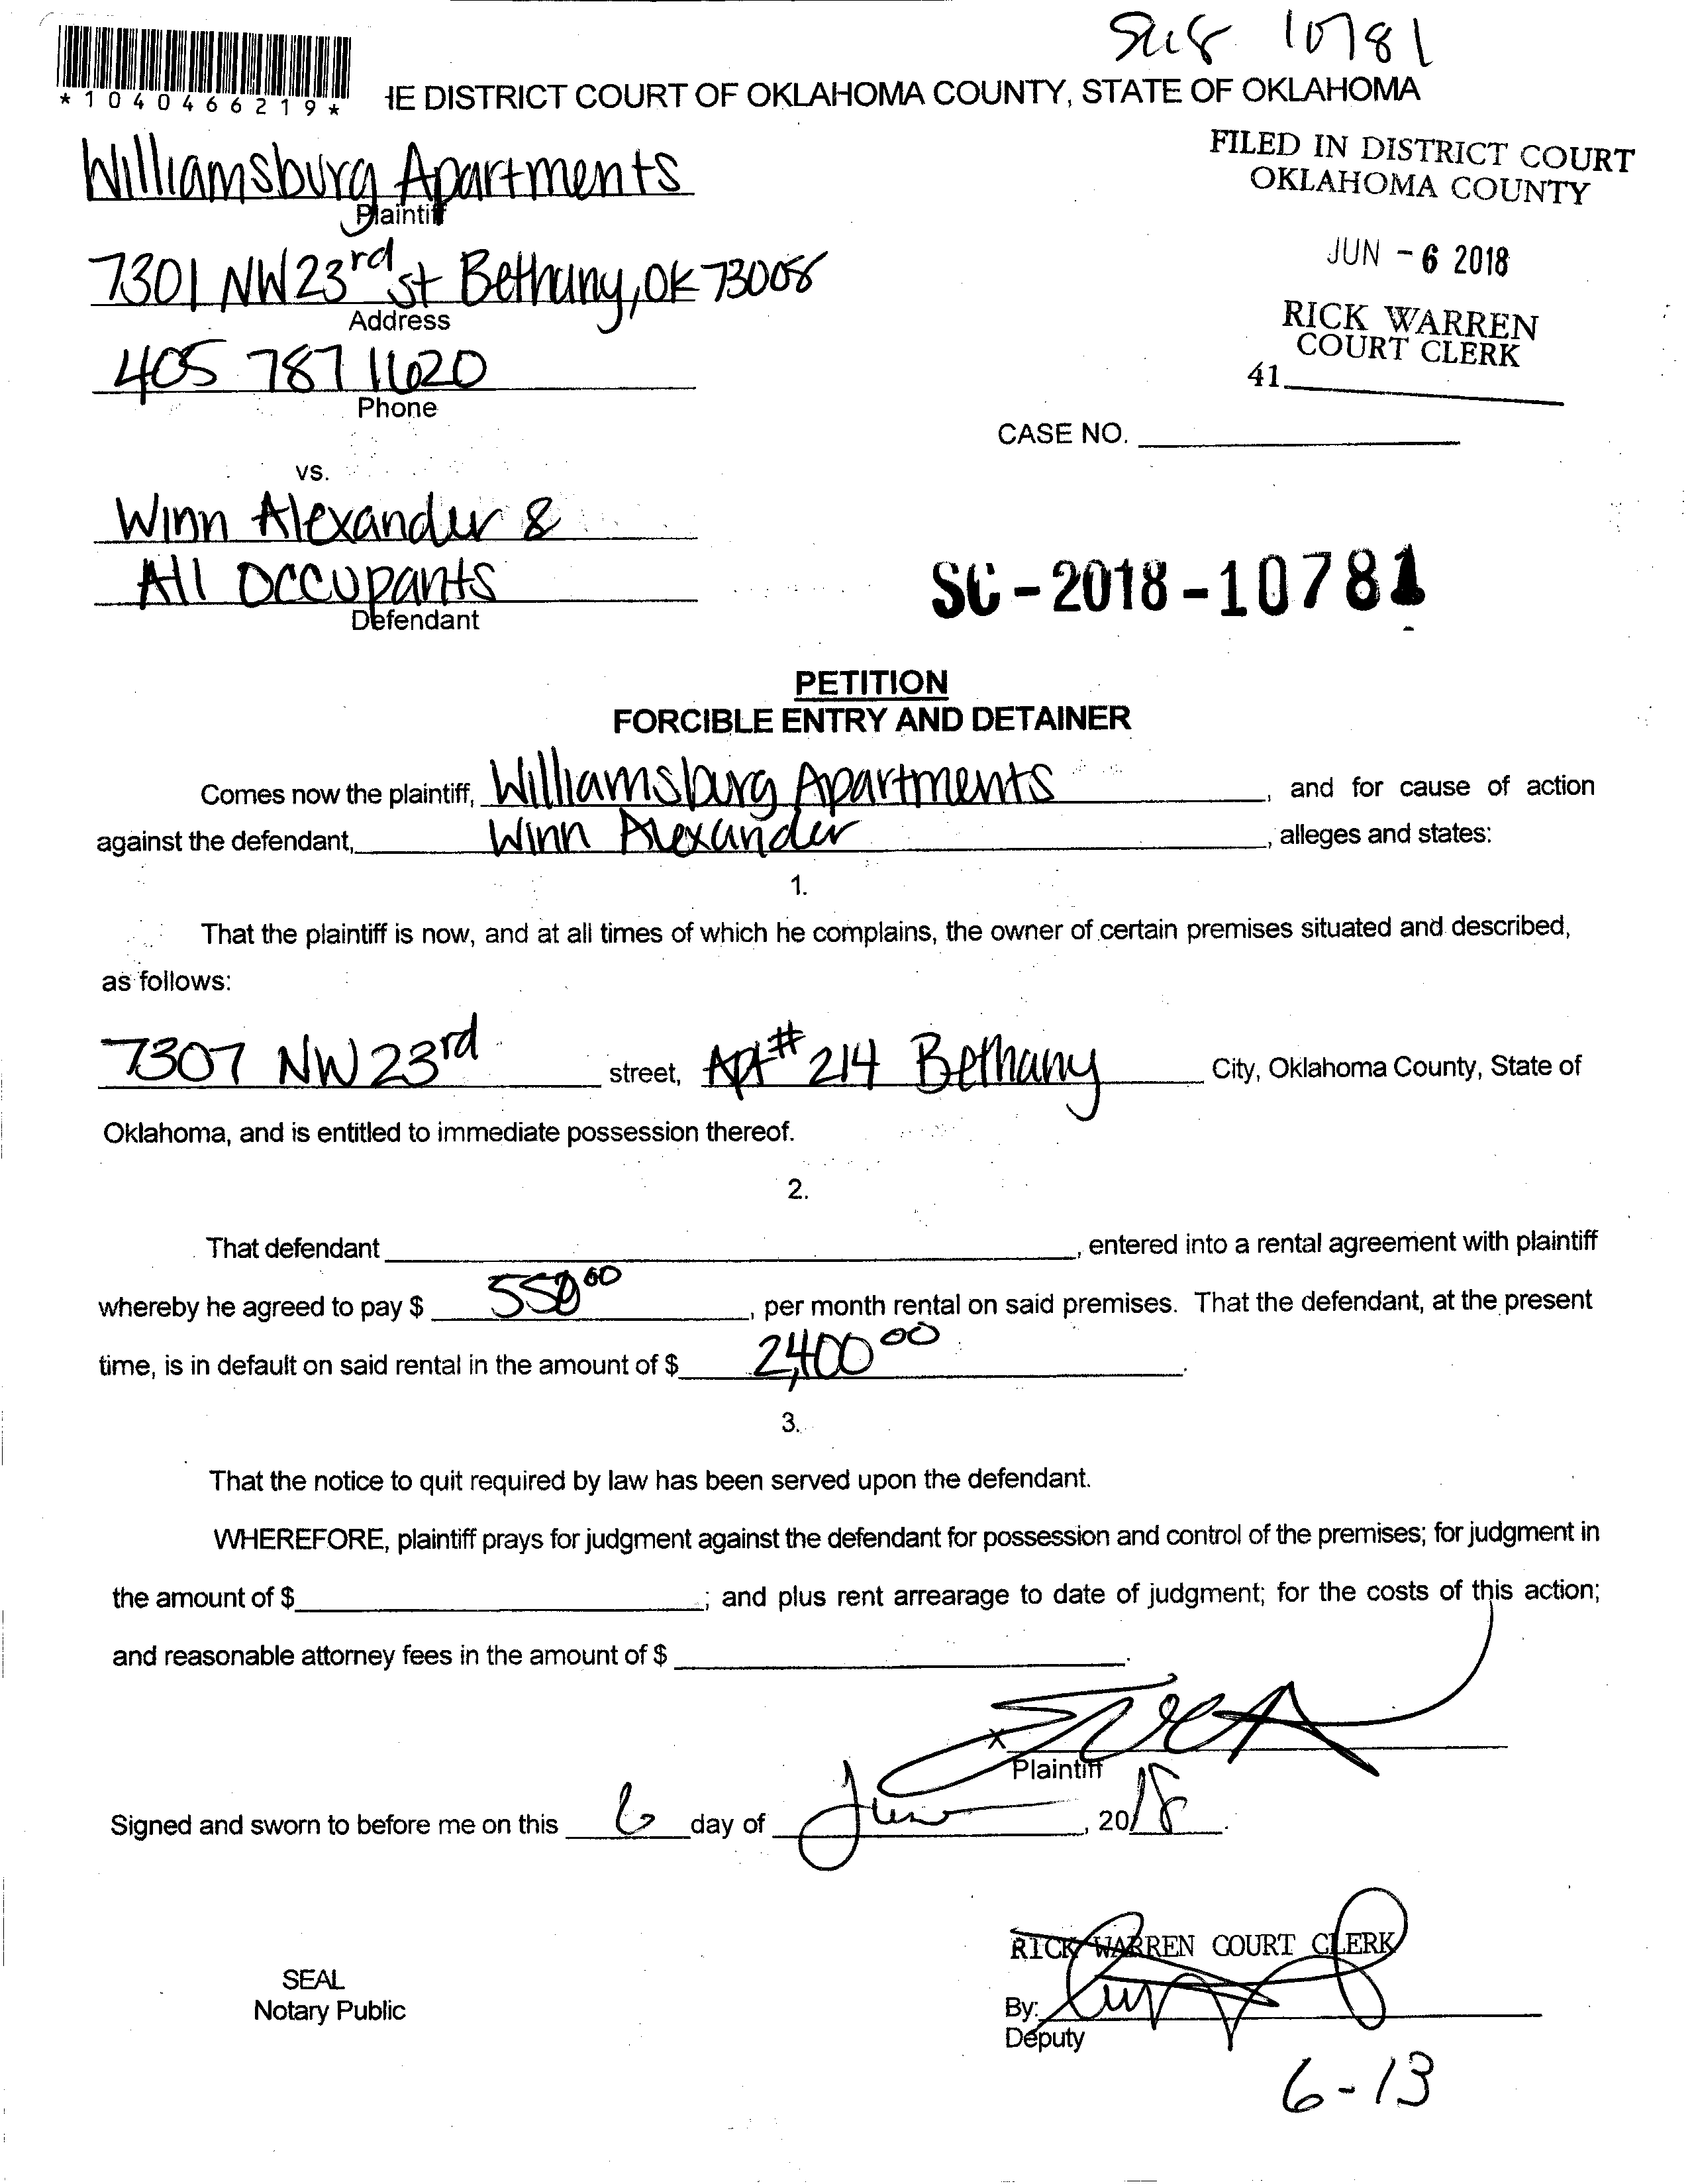 10781
*1040466219*
IE DISTRICT COURT OF OKLAHOMA COUNTY, STATE OF OKLAHOMA
FILED IN DISTRICT COURT
OKLAHOMA COUNTY
Williamsburg Apartments
Plaintiff
JUN - 6 2018
7301 NW 23rd st Bethany, OK 73008
Address
RICK WARREN
COURT CLERK
41
405 787 1620
Phone
CASE NO.
vs.
Winn Alexander &
All Occupants
Defendant
SC-2018-10781
PETITION
FORCIBLE ENTRY AND DETAINER
Comes now the plaintiff, Williamsburg Apartments, and for cause of action
against the defendant, Winn Alexander, alleges and states:
1.
That the plaintiff is now, and at all times of which he complains, the owner of certain premises situated and described,
as follows:
7307 NW 23rd street, Apt# 214 Bethany City, Oklahoma County, State of
Oklahoma, and is entitled to immediate possession thereof.
2.
That defendant , entered into a rental agreement with plaintiff
whereby he agreed to pay $ 550 00, per month rental on said premises. That the defendant, at the present
time, is in default on said rental in the amount of $ 2,400 00.
3.
That the notice to quit required by law has been served upon the defendant.
WHEREFORE, plaintiff prays for judgment against the defendant for possession and control of the premises; for judgment in
the amount of $ ; and plus rent arrearage to date of judgment; for the costs of this action;
and reasonable attorney fees in the amount of $ .
X
Plaintiff
Signed and sworn to before me on this 6 day of June, 2018.
RICK WARREN COURT CLERK
SEAL
Notary Public
By:
Deputy
6-13